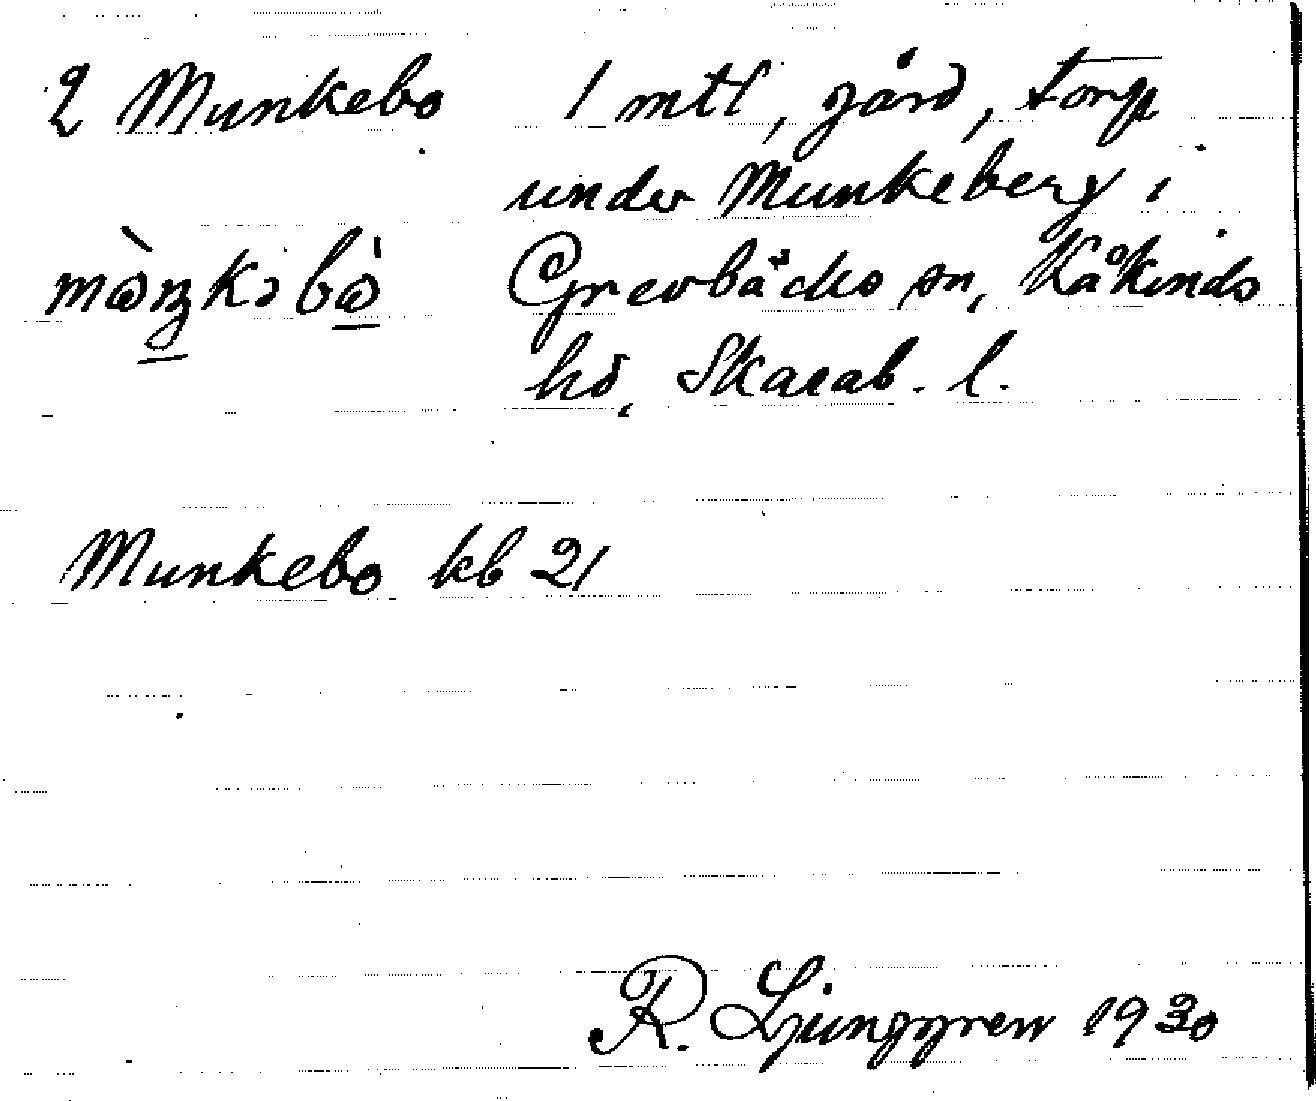 2 Munkebo 1 mtl, gård, torp
under Munkeberg i
Grevbäcks sn, Kåkinds
hd, Skarab. l.
Munkebo kb 21
R. Ljunggren 1930